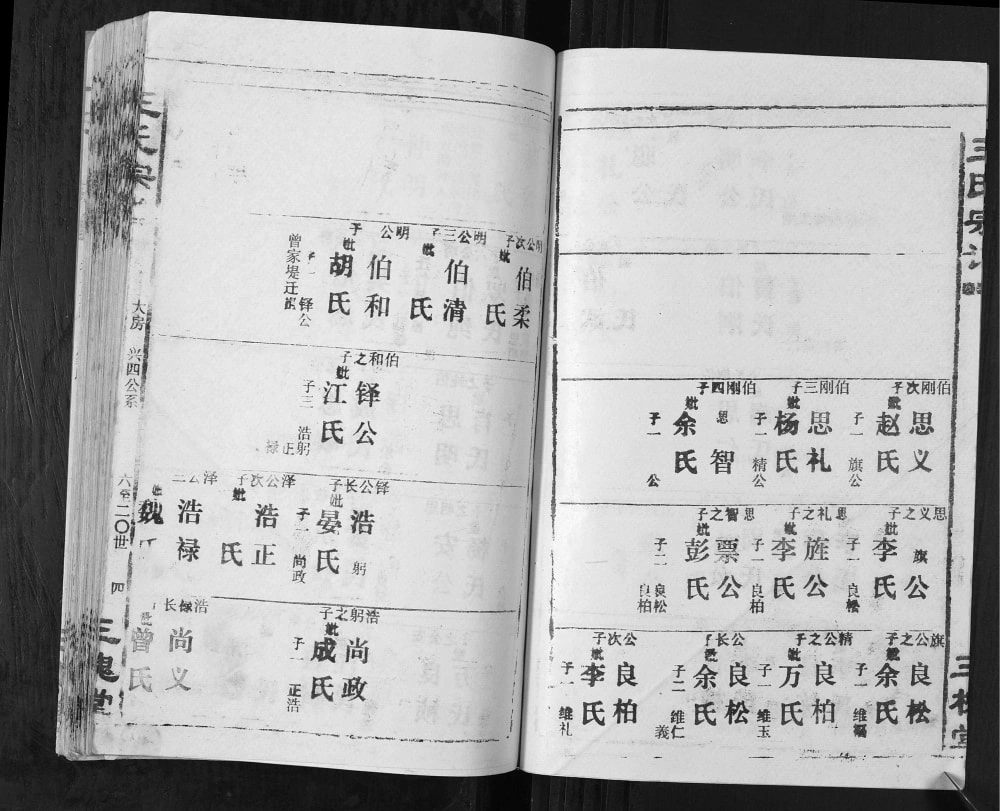 伯刚次子
思义
妣赵氏
子一 旗公
伯刚三子
思礼
妣杨氏
子一 精公
伯刚四子
思智
妣余氏
子一 公
思义之子
旗公
妣李氏
子一 良松
思礼之子
旌公
妣李氏
子一 良柏
思智之子
票公
妣彭氏
子二 良松 良柏
旗公之子
良松
妣余氏
子一
精公之子
良柏
妣万氏
子一 维玉
公长子
良松
妣余氏
子二 维仁 義
公次子
良柏
妣李氏
子一 维礼
明公次子
伯柔
妣 氏
明公三子
伯清
妣 氏
明公 子
伯和
妣胡氏
子一 铎公
曾家堤迁
伯和之子
铎公
妣江氏
子三 浩躬 正 禄
铎公长子
浩躬
妣晏氏
子一 尚政
泽公次子
浩正
妣 氏
泽公三
浩禄
魏氏
浩躬之子
尚政
妣成氏
子一 正浩
浩禄长
尚义
妣曾氏
大房 兴四公系
六至二〇世 四